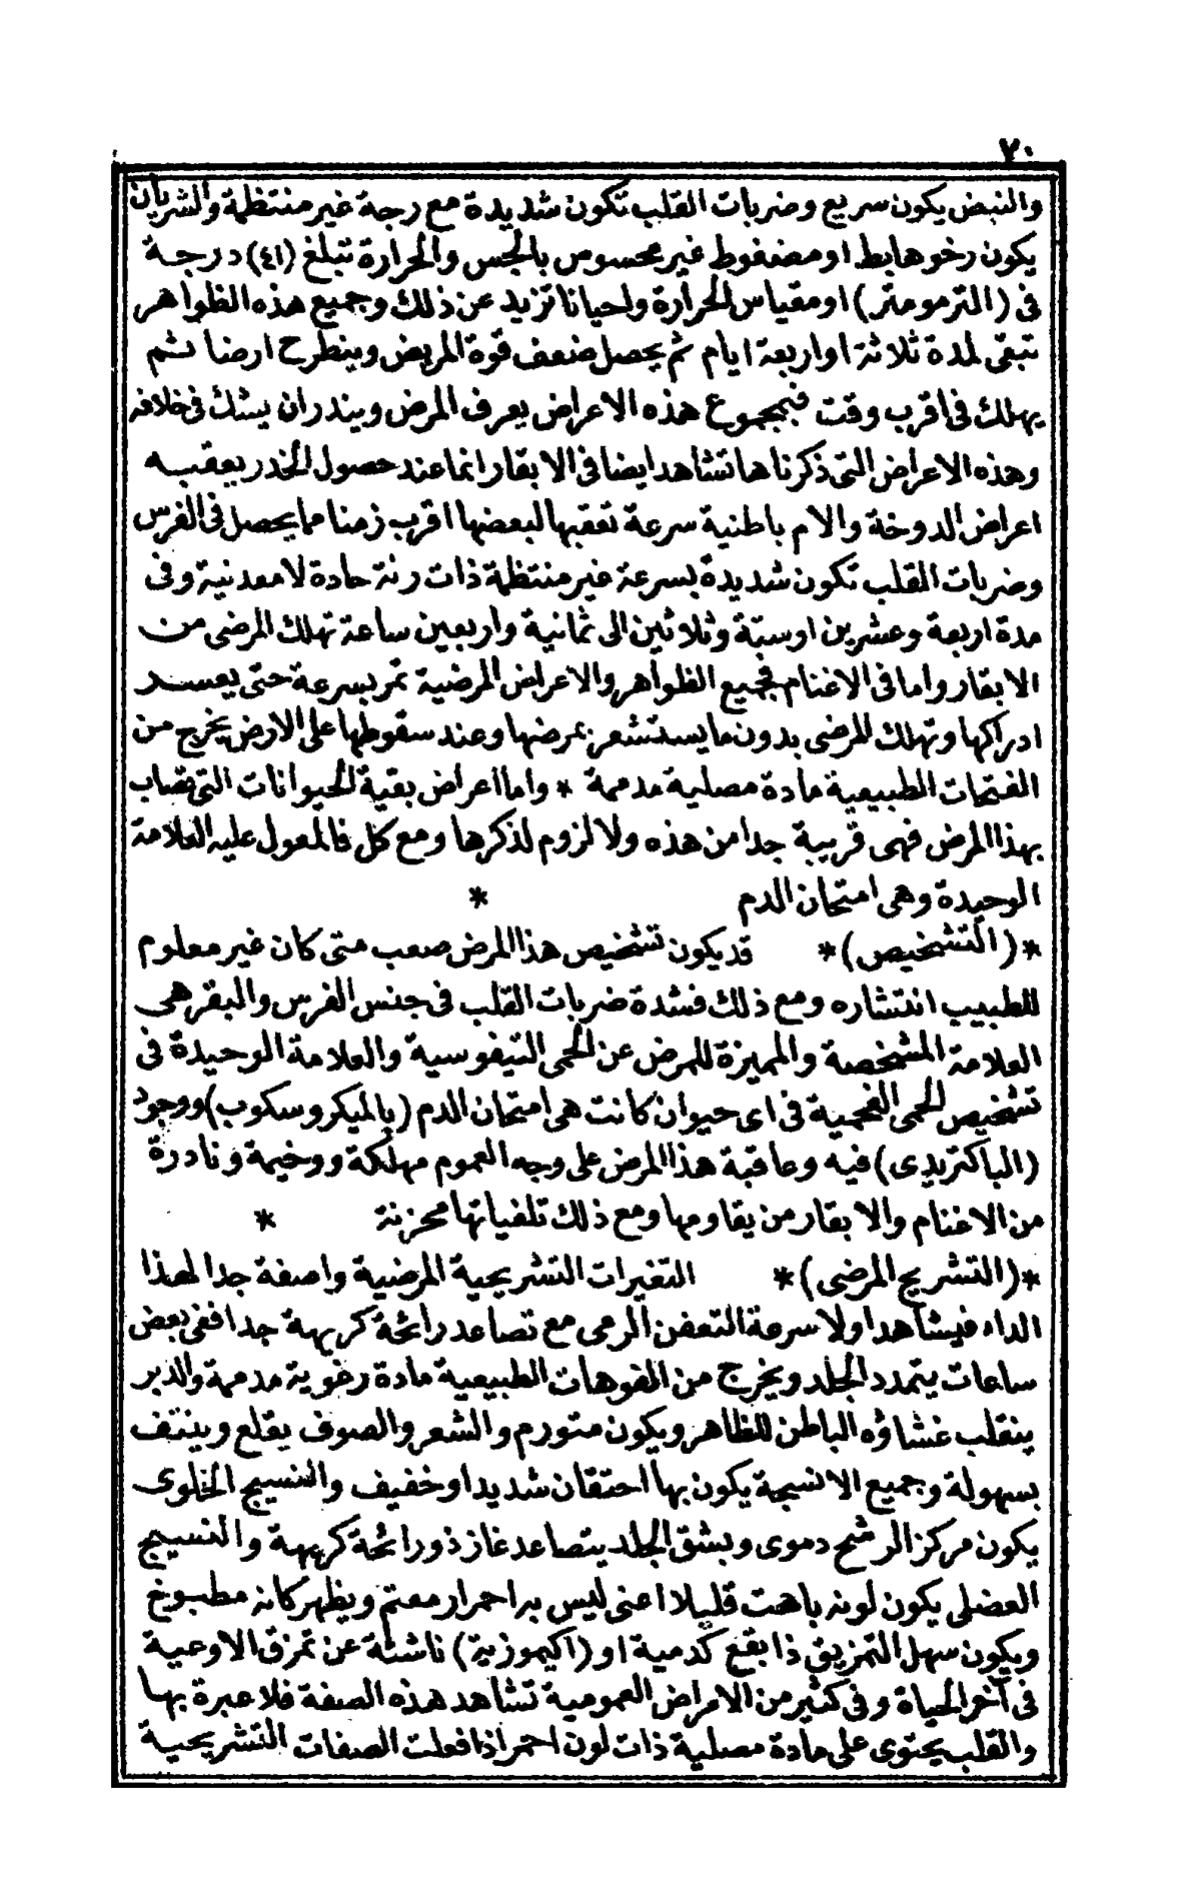 ٧٠
والنبض يكون سريع وضربات القلب تكون شديدة مع رجة غير منتظمة والشريان
يكون رخو هابط او مضغوط غير محسوس بالجس والحرارة تبلغ (٤١) درجة
فى (الترمومتر) او مقياس الحرارة واحيانا تزيد عن ذلك وجميع هذه الظواهر
تبقى لمدة ثلاثة او اربعة ايام ثم يحصل ضعف قوة المريض وينطرح ارضا ثم
يهلك فى اقرب وقت فبمجموع هذه الاعراض يعرف المرض ويندر ان يشك فى خلافه
وهذه الاعراض التى ذكرناها تشاهد ايضا فى الابقار انما عند حصول الخدر يعقبه
اعراض الدوخة والام باطنية سرعة تعقبها لبعضها اقرب زمنا مما يحصل فى الفرس
وضربات القلب تكون شديدة بسرعة غير منتظمة ذات رنة حادة لا معدنية وفى
مدة اربعة وعشرين او ستة وثلاثين الى ثمانية واربعين ساعة تهلك المرضى من
الابقار واما فى الاغنام فجميع الظواهر والاعراض المرضية تمر بسرعة حتى يعسر
ادراكها وتهلك المرضى بدون ما يستشعر بمرضها وعند سقوطها على الارض يخرج من
الفتحات الطبيعية مادة مصلية مدممة * واما اعراض بقية الحيوانات التى تصاب
بهذا المرض فهى قريبة جدا من هذه ولا لزوم لذكرها ومع كل فالمعول عليه العلامة
الوحيدة وهى امتحان الدم *
*(التشخيص)* قد يكون تشخيص هذا المرض صعب متى كان غير معلوم
للطبيب انتشاره ومع ذلك فشدة ضربات القلب فى جنس الفرس والبقر هى
العلامة المشخصة والمميزة للمرض عن الحمى التيفوسية والعلامة الوحيدة فى
تشخيص الحمى الفحمية فى اى حيوان كانت هى امتحان الدم (بالميكروسكوب) ووجود
(الباكتريدى) فيه وعاقبة هذا المرض على وجه العموم مهلكة ووخيمة ونادرة
من الاغنام والابقار من يقاومها ومع ذلك تلفياتها محزنة *
*(التشريح المرضى)* التغيرات التشريحية المرضية واصفة جدا لهذا
الداء فيشاهد اولا سرعة التعفن الرمى مع تصاعد رائحة كريهة جدا ففى بعض
ساعات يتمدد الجلد ويخرج من الفوهات الطبيعية مادة رغوية مدممة والدبر
ينقلب غشاؤه الباطن للظاهر ويكون متورم والشعر والصوف يقلع وينتف
بسهولة وجميع الانسجة يكون بها احتقان شديد او خفيف والنسيج الخلوى
يكون مركز الرشح دموى وبشق الجلد يتصاعد غاز ذو رائحة كريهة والنسيج
العضلى يكون لونه باهت قليلا اعنى ليس به احمرار معتم ويظهر كانه مطبوخ
ويكون سهل التمزيق ذا بقع كدمية او (اكيموزية) ناشئة عن تمزق الاوعية
فى آخر الحياة وفى كثير من الامراض العمومية تشاهد هذه الصفة فلا عبرة بها
والقلب يحتوى على مادة مصلية ذات لون احمر اذا فعلت الصفات التشريحية